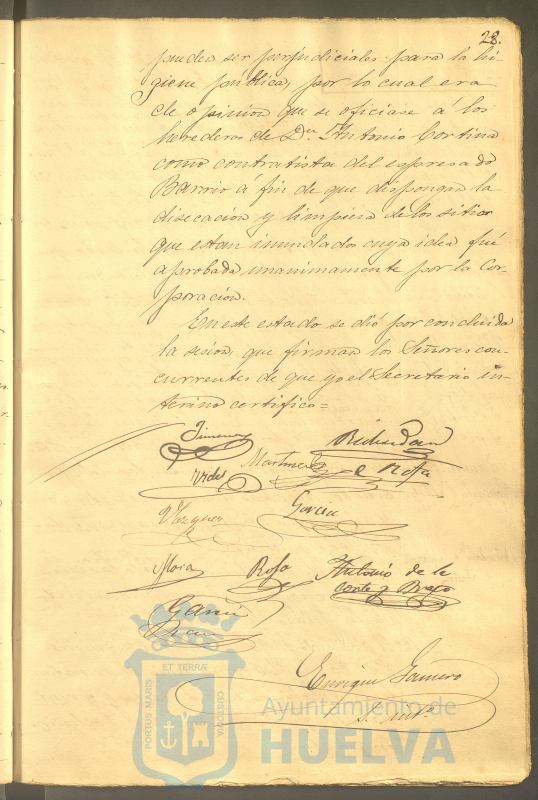 28.
pueden ser perjudiciales para la hi-
giene publica, por lo cual era
de opinion que se oficiase á los
herederos de Dn Antonio Cortina
como contratista del espresado
Barrio á fin de que dispongan la
disecacion y limpiesa de los sitios
que estan inundados cuya idea fué
aprobada unanimamente por la Cor-
poracion.
En este estado se dió por concluida
la sesion, que firman los Señores con-
currentes de que yo el Secretario in-
terino certifico=
Jimenez
Vides Martinez de Rosa
Vazquez Garcia
Mora Rosa Antonio de la
Corte y Bravo
Garcia
Enrique
s. intº
ET TERRÆ
PORTUS MARIS
CUSTODIA
Ayuntamiento de
HUELVA